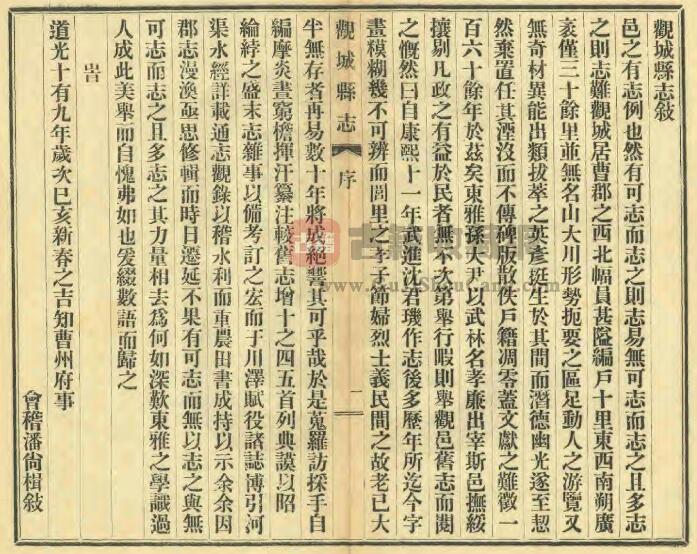 觀城縣志敘
邑之有志例也然有可志而志之則志易無可志而志之且多志
之則志難觀城居曹郡之西北幅員甚隘編戶十里東西南朔廣
袤僅三十餘里並無名山大川形勢扼要之區足動人之游覽又
無奇材異能出類拔萃之英彥挺生於其間而潛德幽光遂至恝
然棄置任其湮沒而不傳碑版散佚戶籍凋零蓋文獻之難徵一
百六十餘年於茲矣東雅孫大尹以武林名孝廉出宰斯邑撫綏
攘剔凡政之有益於民者無不次第舉行暇則舉觀邑舊志而閱
之慨然曰自康熙十一年武進沈君璣作志後多歷年所迄今字
畫糢糊幾不可辨而閭里之孝子節婦烈士義民問之故老已大
觀城縣志
序
二
半無存者再易數十年將成絕響其可乎哉於是蒐羅訪採手自
編摩炎晝窮檐揮汗纂注較舊志增十之四五首列典謨以昭
綸綍之盛末志雜事以備考訂之宏而于川澤賦役諸誌博引河
渠水經詳載通志觀錄以稽水利而重農田書成持以示余余因
郡志漫漶亟思修輯而時日遷延不果有可志而無以志之與無
可志而志之且多志之其力量相去為何如深歎東雅之學識過
人成此美舉而自愧弗如也爰綴數語而歸之
旹
道光十有九年歲次己亥新春之吉知曹州府事
會稽潘尙楫敘
古籍收藏網
www.GuJiShouCang.com